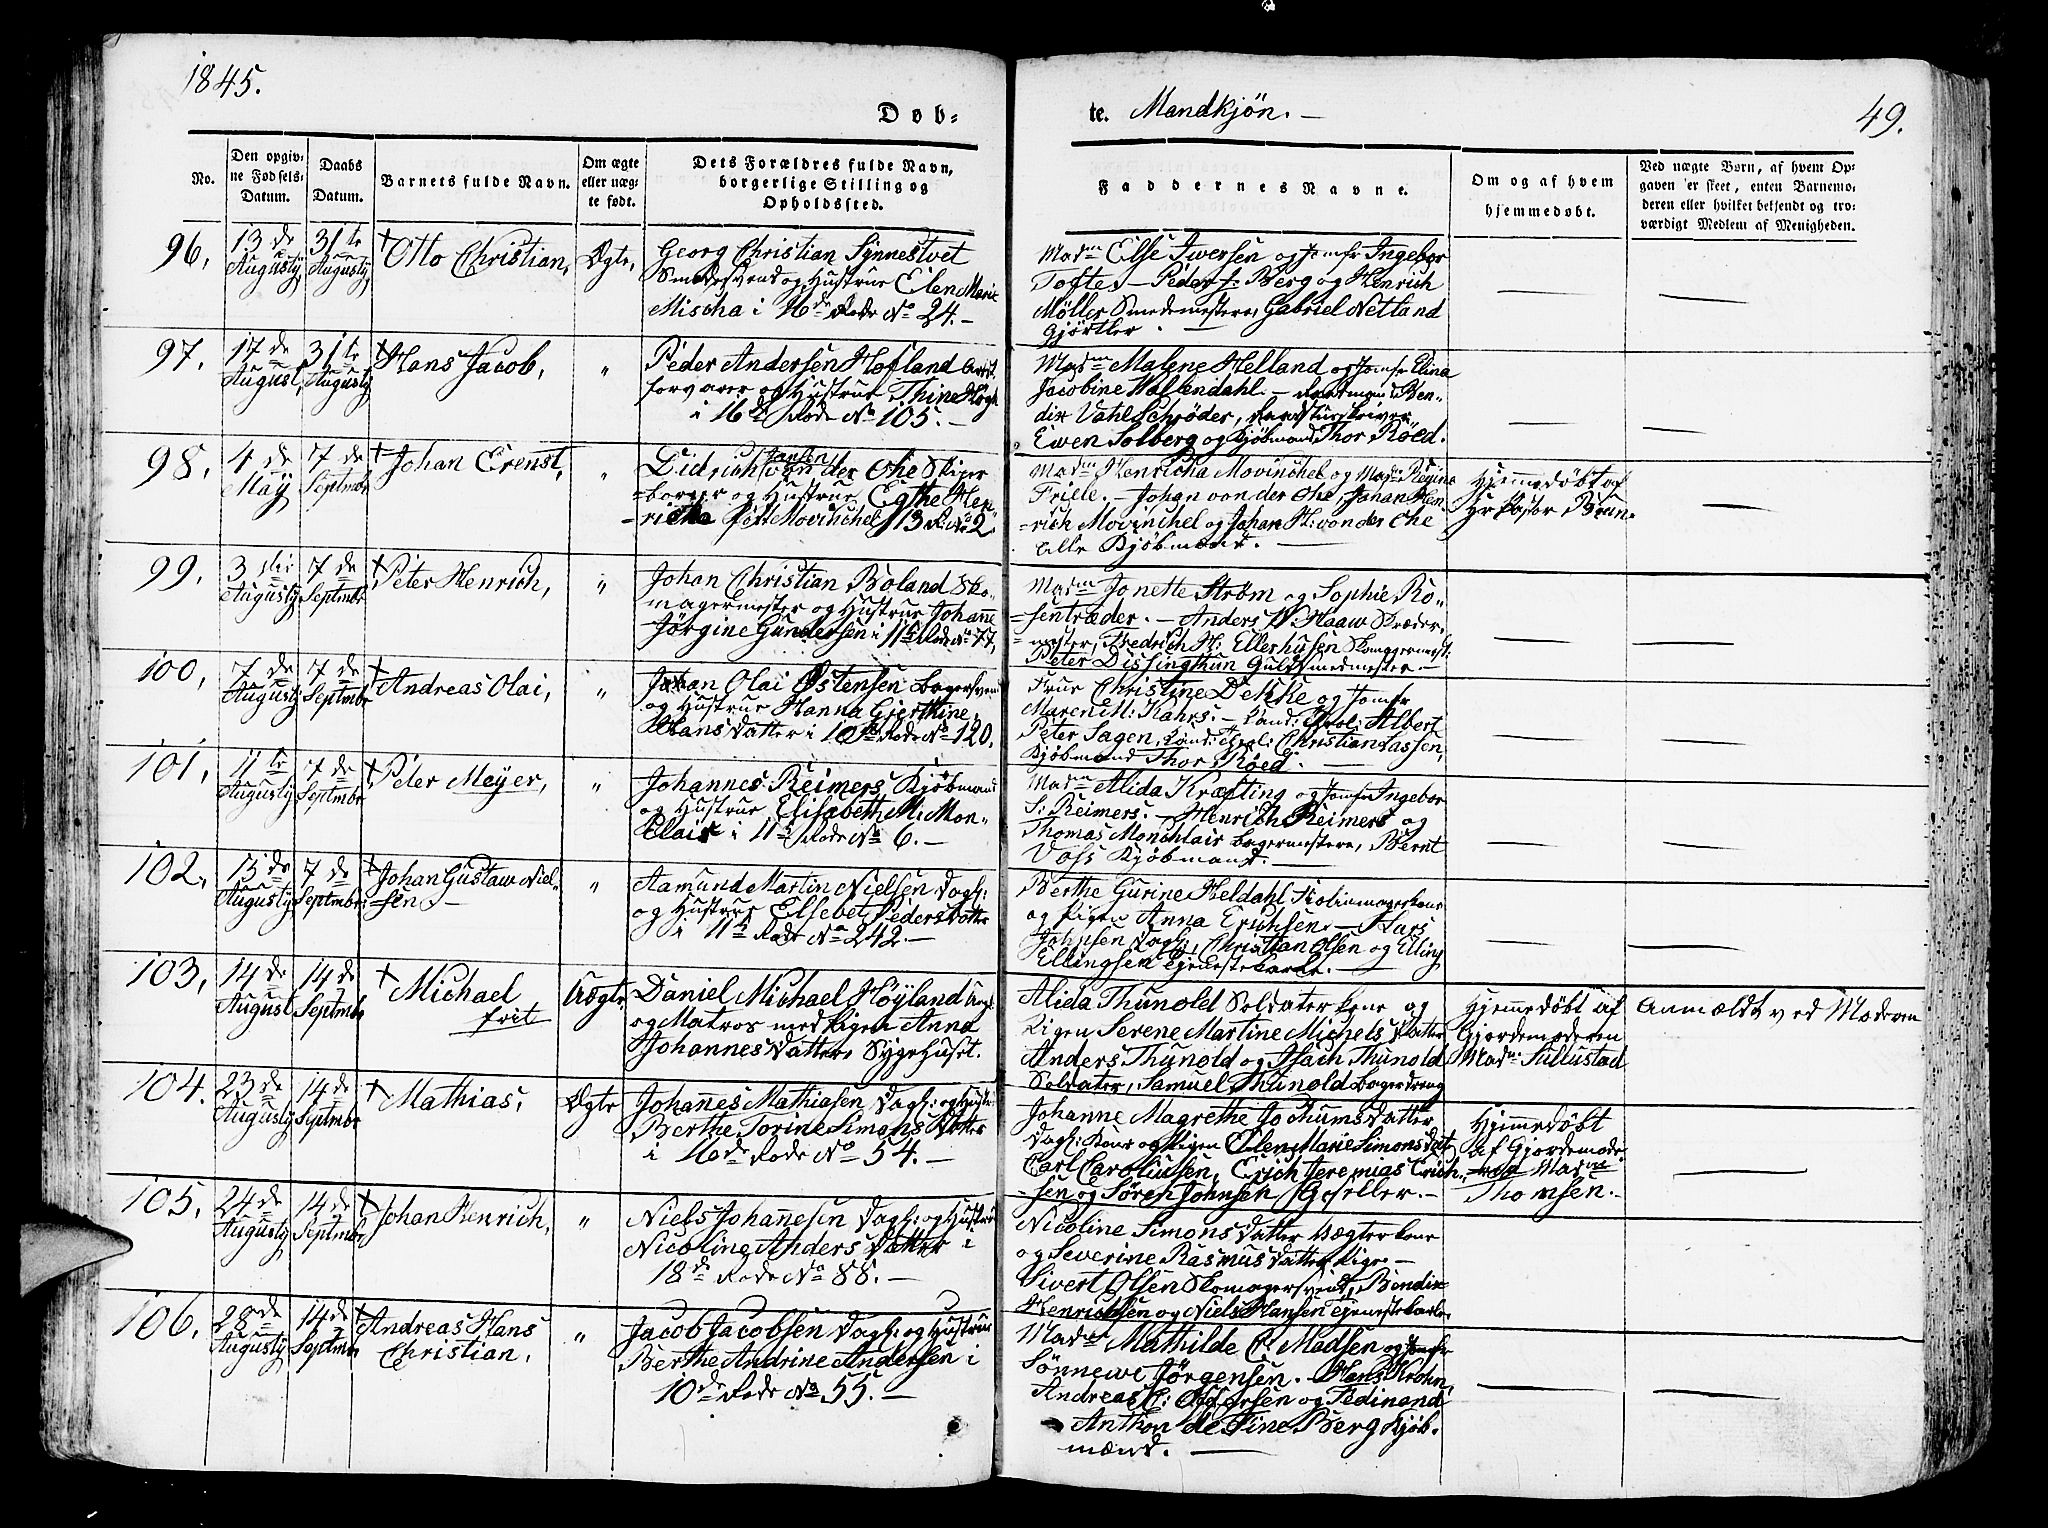 1845.
Døb-
te. Mandkjøn. —
49.
No.
Den opgiv-
ne Fødsels-
Datum.
Daabs
Datum.
Barnets fulde Navn.
Om ægte
eller uæg-
te født.
Dets Forældres fulde Navn,
borgerlige Stilling og
Opholdssted.
Faddernes Navne.
Om og af hvem
hjemmedøbt.
Ved uægte Børn, af hvem Op-
gaven er skeet, enten Barnemo-
deren eller hvilket bekjendt og tro-
værdigt Medlem af Menigheden.
96, 13de Augusty 31te Augusty † Otto Christian, Ægte,
Georg Christian Synnestvet
Smedesvend og Hustrue Elen Marie
Mischa i 16de Rode No 24. —
Madm Else Iwersen og Jomfr Ingebor
Tofte. — Peder J: Berg og Henrich
Møller Smedemestere, Gabriel Netland
Gjørtler. —
97, 17de August, 31te Augusty † Hans Jacob, "
Peder Andersen Hofland Arrest
forvarer og Hustrue Thine Høgh
i 16de Rode No 105. —
Madm Malene Helland og Jomfr Elina
Jacobine Wallendahl. — Raadmand Ben-
dix Vahl Schrøder, Raadstueskriver
Ewen Solberg og Kjøbmand Thor Røed.
98, 4de May 7de Septmbr † Johan Erenst, "
Didrich Jansen von der Ohe Skiper
borger og Hustrue Egthe Hen-
riche født Movinchel, 13 R. No 2.
Madm Henricha Movinchel og Madm Regina
Friele. — Johan von der Ohe, Johan Hen-
rich Movinchel og Johan H: von der Ohe
alle Kjøbmænd. —
Hjemmedøbt af
Hr Pastor Brun.
99, 3die Augusty 7de Septmbr † Peter Henrich, "
Johan Christian Boland Sko-
magermester og Hustrue Johanne
Jørgine Gundersen i 11te Rode No 77,
Madm Jonette Strøm og Sophie Ro-
sentræder. — Anders W. Haaw Skræder-
mester, Fredrich H. Ellerhusen Skomagermest:
Peter Dissingthun Guldsmedmester. —
100, 7de Augusty 7de Septmbr † Andreas Olai, "
Johan Olai Østensen Bagersvend
og Hustrue Hanna Gjerthine
Hans Datter i 10de Rode No 120.
Frue Christine Dekke og Jomfr
Maren M: Kahrs. — Cand: Theol: Albert
Peter Sagen, Cand: Theol: Christian Lassen,
Kjøbmand Thor Røed. —
101, 11te Augusty 7de Septmbr † Peter Meyer, "
Johannes Reimers, Kjøbmand
og Hustrue Elisabeth M: Mon-
Clair i 11te Rode No 6. —
Madm Alida Kræfting og Jomfr Ingebor
S: Reimers. — Henrich Reimers og
Thomas Monchlair Bagermestere, Bernt
Voss Kjøbmand. —
102, 13de Augusty 7de Septmbr † Johan Gustaw Niel-
sen, —
"
Aamund Martin Nielsen Dagl:
og Hustrue Elsebet Peders Datter
i 11te Rode No 242. —
Berthe Gurine Heldahl
og Pigen Anna Erichsen. — Lars
Johnsen Dagl:, Christian Olsen og Elling
Ellingsen Tjenestekarle. —
103, 14de August 14de Septmbr † Michael
frit
Uægte
Daniel Michael Høyland Ungk:
og Matros med Pigen Anna
Johannes Datter, Sygehuset.
Alida Thunold Soldaterkone og
Pigen Serene Martine Michels Datter
Anders Thunold og Isach Thunold
Soldater, Samuel Thunold Bagerdreng
Hjemmedøbt af
Gjordemoderen
Madm: Sullustad
Anmeldt ved Moderen
104. 23de Augusty 14de Septmbr † Mathias, Ægte
Johannes Mathiasen Dagl: og Hustr:
Berthe Torine Simons Datter
i 16de Rode No 54. —
Johanne Magrethe Jochums Datter
Dagl: Kone og Pigen Ellen Marie Simons Dat:
Carl Caroliusen, Erich Jeremias Erich-
sen og Søren Johnsen Geseller. —
Hjemmedøbt
af Gjordemode-
ren Madm
Thomsen. —
105, 24de Augusty 14de Septmbr † Johan Henrich, "
Niels Johannesen Dagl: og Hustrue
Nicoline Anders Datter i
18de Rode No 88. —
Nicoline Simons Datter Vægterkone
og Severine Rasmus Datter Pige. —
Sivert Olsen Skomagersvend, Bendix
Henrichsen og Niels Hansen Tjenestekarle,
106, 28de Augusty 14de Septmbr † Andreas Hans
Christian,
"
Jacob Jacobsen Dagl: og Hustrue
Berthe Andrine Andersen i
10de Rode No 55. —
Madm Mathilde C. Madsen og Jomfr
Sønnewe Jørgensen. — Hans Krohn,
Andreas og Fedinand
Anthon de Fine Berg Kjøb-
mænd. —